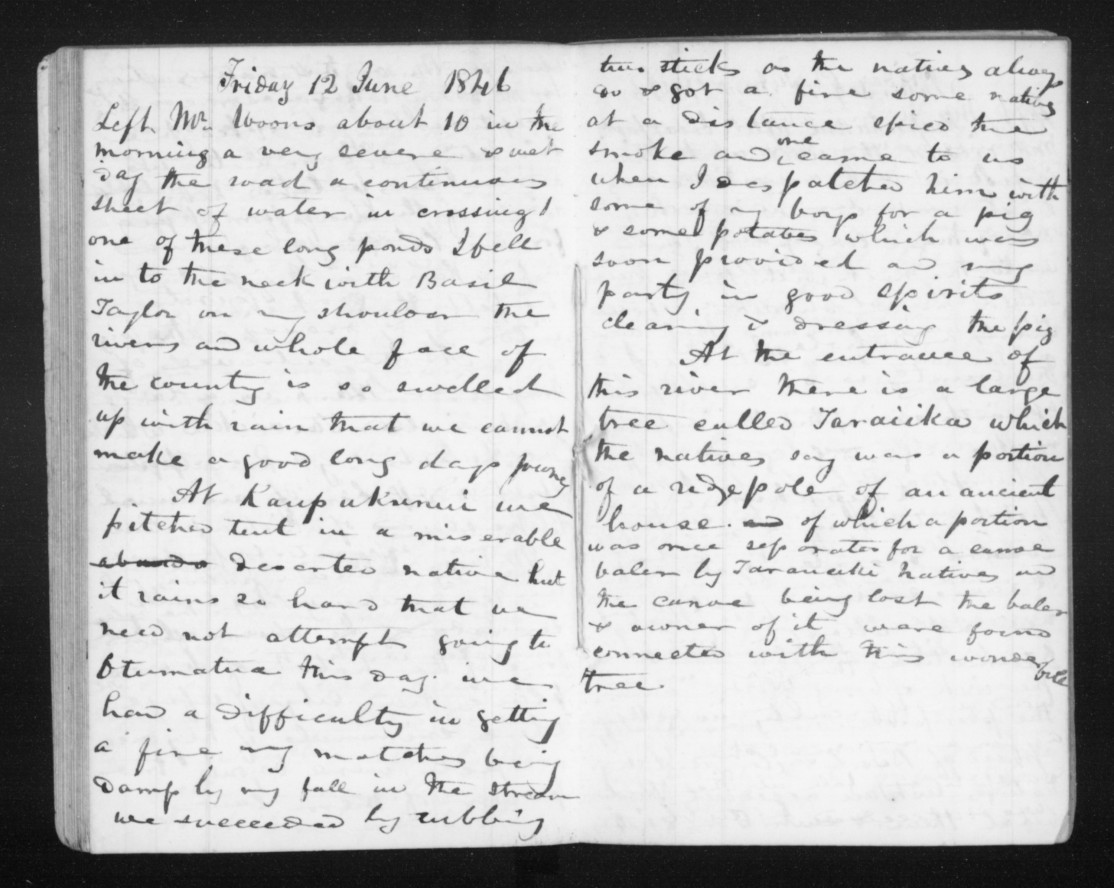 Friday 12 June 1846
Left Mr. Woons about 10 in the
morning a very severe & wet
day the road a continuous
sheet of water in crossing
one of these long ponds I fell
in to the neck with Basil
Taylor on my shoulder the
rivers and whole face of
the country is so swelled
up with rain that we cannot
make a good long days journey
At Kaupukunui we
pitched tent in a miserable
deserted native hut
it rains so hard that we
need not attempt going to
Otumatua this day. we
had a difficulty in getting
a fire my matches being
damp by my fall in the stream
we succeeded by rubbing
two sticks as the natives always
do & got a fire some natives
at a distance spied the
smoke and one came to us
when I despatched him with
some of my boys for a pig
& some potatoes which were
soon provided and my
party in good spirits
cleaning & dressing the pig
At the entrance of
this river there is a large
tree called Taraiika which
the natives say was a portion
of a ridgepole of an ancient
house. of which a portion
was once separated for a canoe
baler by Taranaki Natives and
the canoe being lost the baler
& owner of it were found
connected with this wonderful
tree.